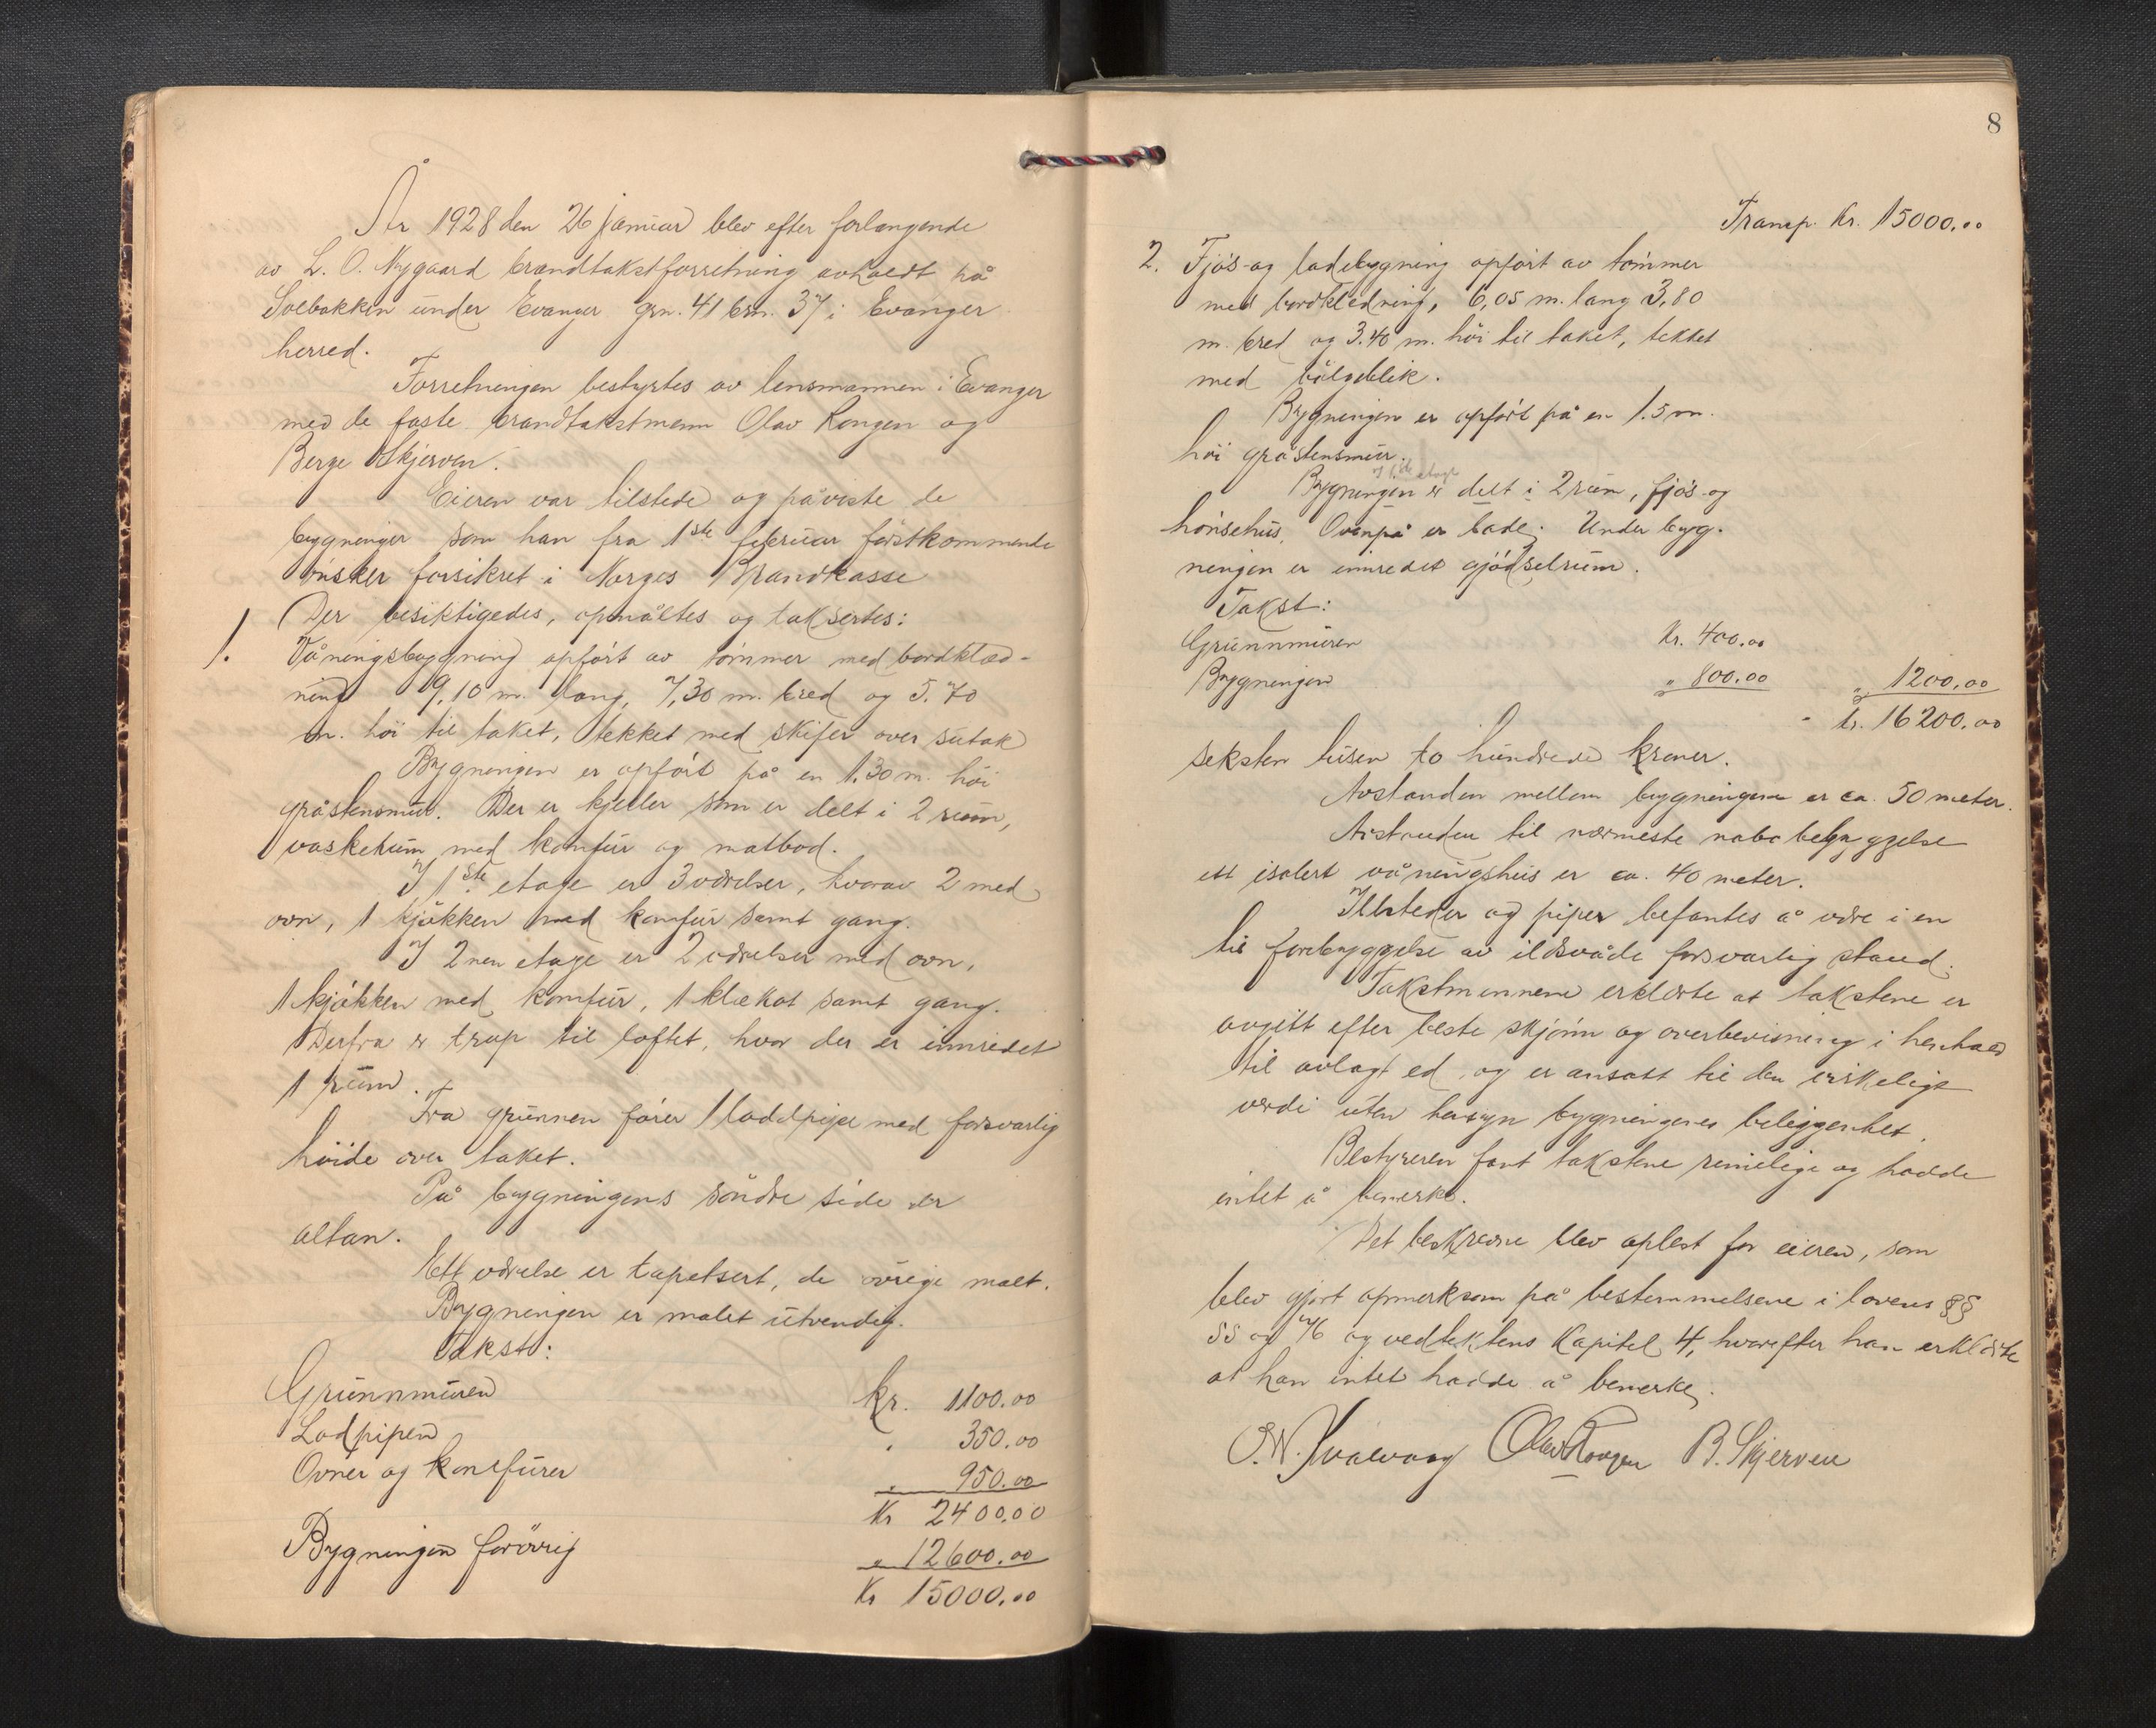 År 1928 den 26 januar blev efter forlangende
av L. O. Nygaard brandtakstforretning avholdt på
Solbakken under Evanger grn. 41 brn. 37 i Evanger
herred.
Forretningen bestyrtes av lensmannen i Evanger
med de faste brandtakstmenn Olav Rongen og
Berge Skjerven.
Eieren var tilstede og påviste de
bygninger som han fra 1ste februar førstkommende
ønsker forsikret i Norges Brandkasse
Der besiktigedes, opmåltes og taksertes:
1. Våningsbygning opført av tømmer med bordklæd-
ning 9,10 m. lang, 7,30 m. bred og 5.70
m. høi til taket, tekket med skifer over sutak
Bygningen er opført på en 1.30 m. høi
gråstensmur. Der er kjeller som er delt i 2 rum,
vaskerum med komfur og matbod.
I 1ste etage er 3 værelser, hvorav 2 med
ovn, 1 kjøkken med komfur samt gang.
I 2nen etage er 2 værelser med ovn,
1 kjøkken med komfur, 1 klekot samt gang.
Derfra er trap til loftet, hvor der er innredet
1 rum.
Fra grunnen fører 1 loddpipe med forsvarlig
høide over taket.
På bygningens søndre side er
altan.
Ett værelse er tapetsert, de øvrige malt.
Bygningen er malet utvendig.
Takst:
Grunnmuren kr. 1100.00
Lodpipen " 350.00
Ovner og komfurer " 950.00
Kr 2400.00
Bygningen forøvrig " 12600.00
Kr 15000.00
8
Transp. Kr. 15000.00
2. Fjøs- og ladebygning opført av tømmer
med bordklædning, 6,05 m. lang 3,80
m. bred og 3.40 m. høi til taket, tekket
med bølgeblik.
Bygningen er opført på en 1.5 m.
høi gråstensmur.
I 1ste etage
Bygningen er delt i 2 rum, fjøs- og
hønsehus. Ovenpå er lade. Under byg-
ningen er innredet gjødselrum.
Takst:
Grunnmuren Kr. 400.00
Bygningen " 800.00 " 1200.00
kr. 16200.00
seksten tusen to hundrede kroner.
Avstanden mellem bygningene er ca. 50 meter.
Avstanden til nærmeste nabobebyggelse
ett isolert våningshus er ca. 40 meter.
Ildsteder og piper befantes å være i en
til forebyggelse av ildsvåde forsvarlig stand.
Takstmennene erklærte at takstene er
avgitt efter beste skjønn og overbevisning i henhold
til avlagt ed, og er ansatt til den virkelige
verdi uten hensyn bygningenes beliggenhet.
Bestyreren fant takstene rimelige og hadde
intet å bemerke.
Det beskrevne blev oplest for eieren, som
blev gjort opmerksom på bestemmelsene i lovens §§
55 og 76 og vedtektens Kapitel 4, hvorefter han erklærte
at han intet hadde å bemerke.
Olav Rongen B. Skjerven